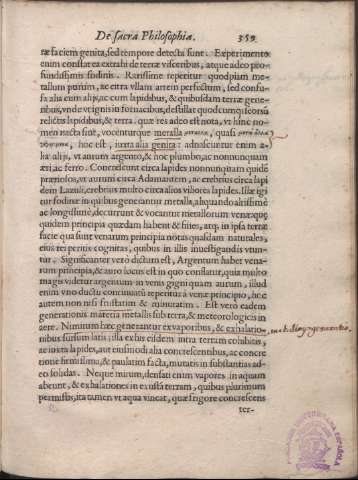 De sacra Philosophia. 359
ræ faciem genita, sed tempore detecta sunt. Experimento
enim constat ea extrahi de terræ visceribus, atque adeo pro-
fundissimis fodinis. Rarissime reperitur quodpiam me-
tallum purum, ac citra vllam artem perfectum, sed confu-
sa alia cum alijs, ac cum lapidibus, & quibusdam terræ gene-
ribus, vnde vt ignis in fornacibus, defillat quod cumque scorsū
relictis lapidibus, & terra. quæ res adeo est nota, vt hinc no-
men nacta sint, vocenturque metalla μέταλλα, quasi
hoc est, iuxta alia genita: adnascuntur enim a-
lia alijs, vt aurum argento, & hoc plumbo, ac nonnunquam
æri, ac ferro. Concrescunt circa lapides nonnunquam quidē
præciosos, vt aurum circa Adamantem, ac crebrius circa lapi
dem Lazuli, crebrius multo circa alios viliores lapides. Illæ igi
tur fodinæ in quibus generantur metalla, aliquando altissimè
ac longissimè, decurrunt & vocantur metallorum venæ, quæ
quidem principia quædam habent & fines, atq. in ipsa terræ
facie qua sunt venarum principia notas quasdam naturales,
eius rei peritis cognitas, quibus in illis inuestigandis vtun-
tur. Significanter verò dictum est, Argentum habet vena-
rum principia, & auro locus est in quo conflatur, quia multo
magis videtur argentum in venis gigni quam aurum, illud
enim vno ductu continuatū reperitur à venæ principio, hoc
autem non nisi frustatim & minutatim. Est verò eadem
generationis materia metallis sub terra, & meteorologicis in
aere. Nimirum hæc generantur ex vaporibus, & exhalatio-
nibus sursum latis; illa ex his eisdem intra terram cohibitis,
ac iuxta lapides, aut eiusmodi alia concrescentibus, ac concre
tione firmissima, & paulatim facta, mutatis in substantias ad-
eo solidas. Neque mirum, densati enim vapores in aquam
abeunt, & exhalationes in exustā terram, quibus plurimum
permistis, ita tamen vt aqua vincat, quæ frigore concrescens
ter-